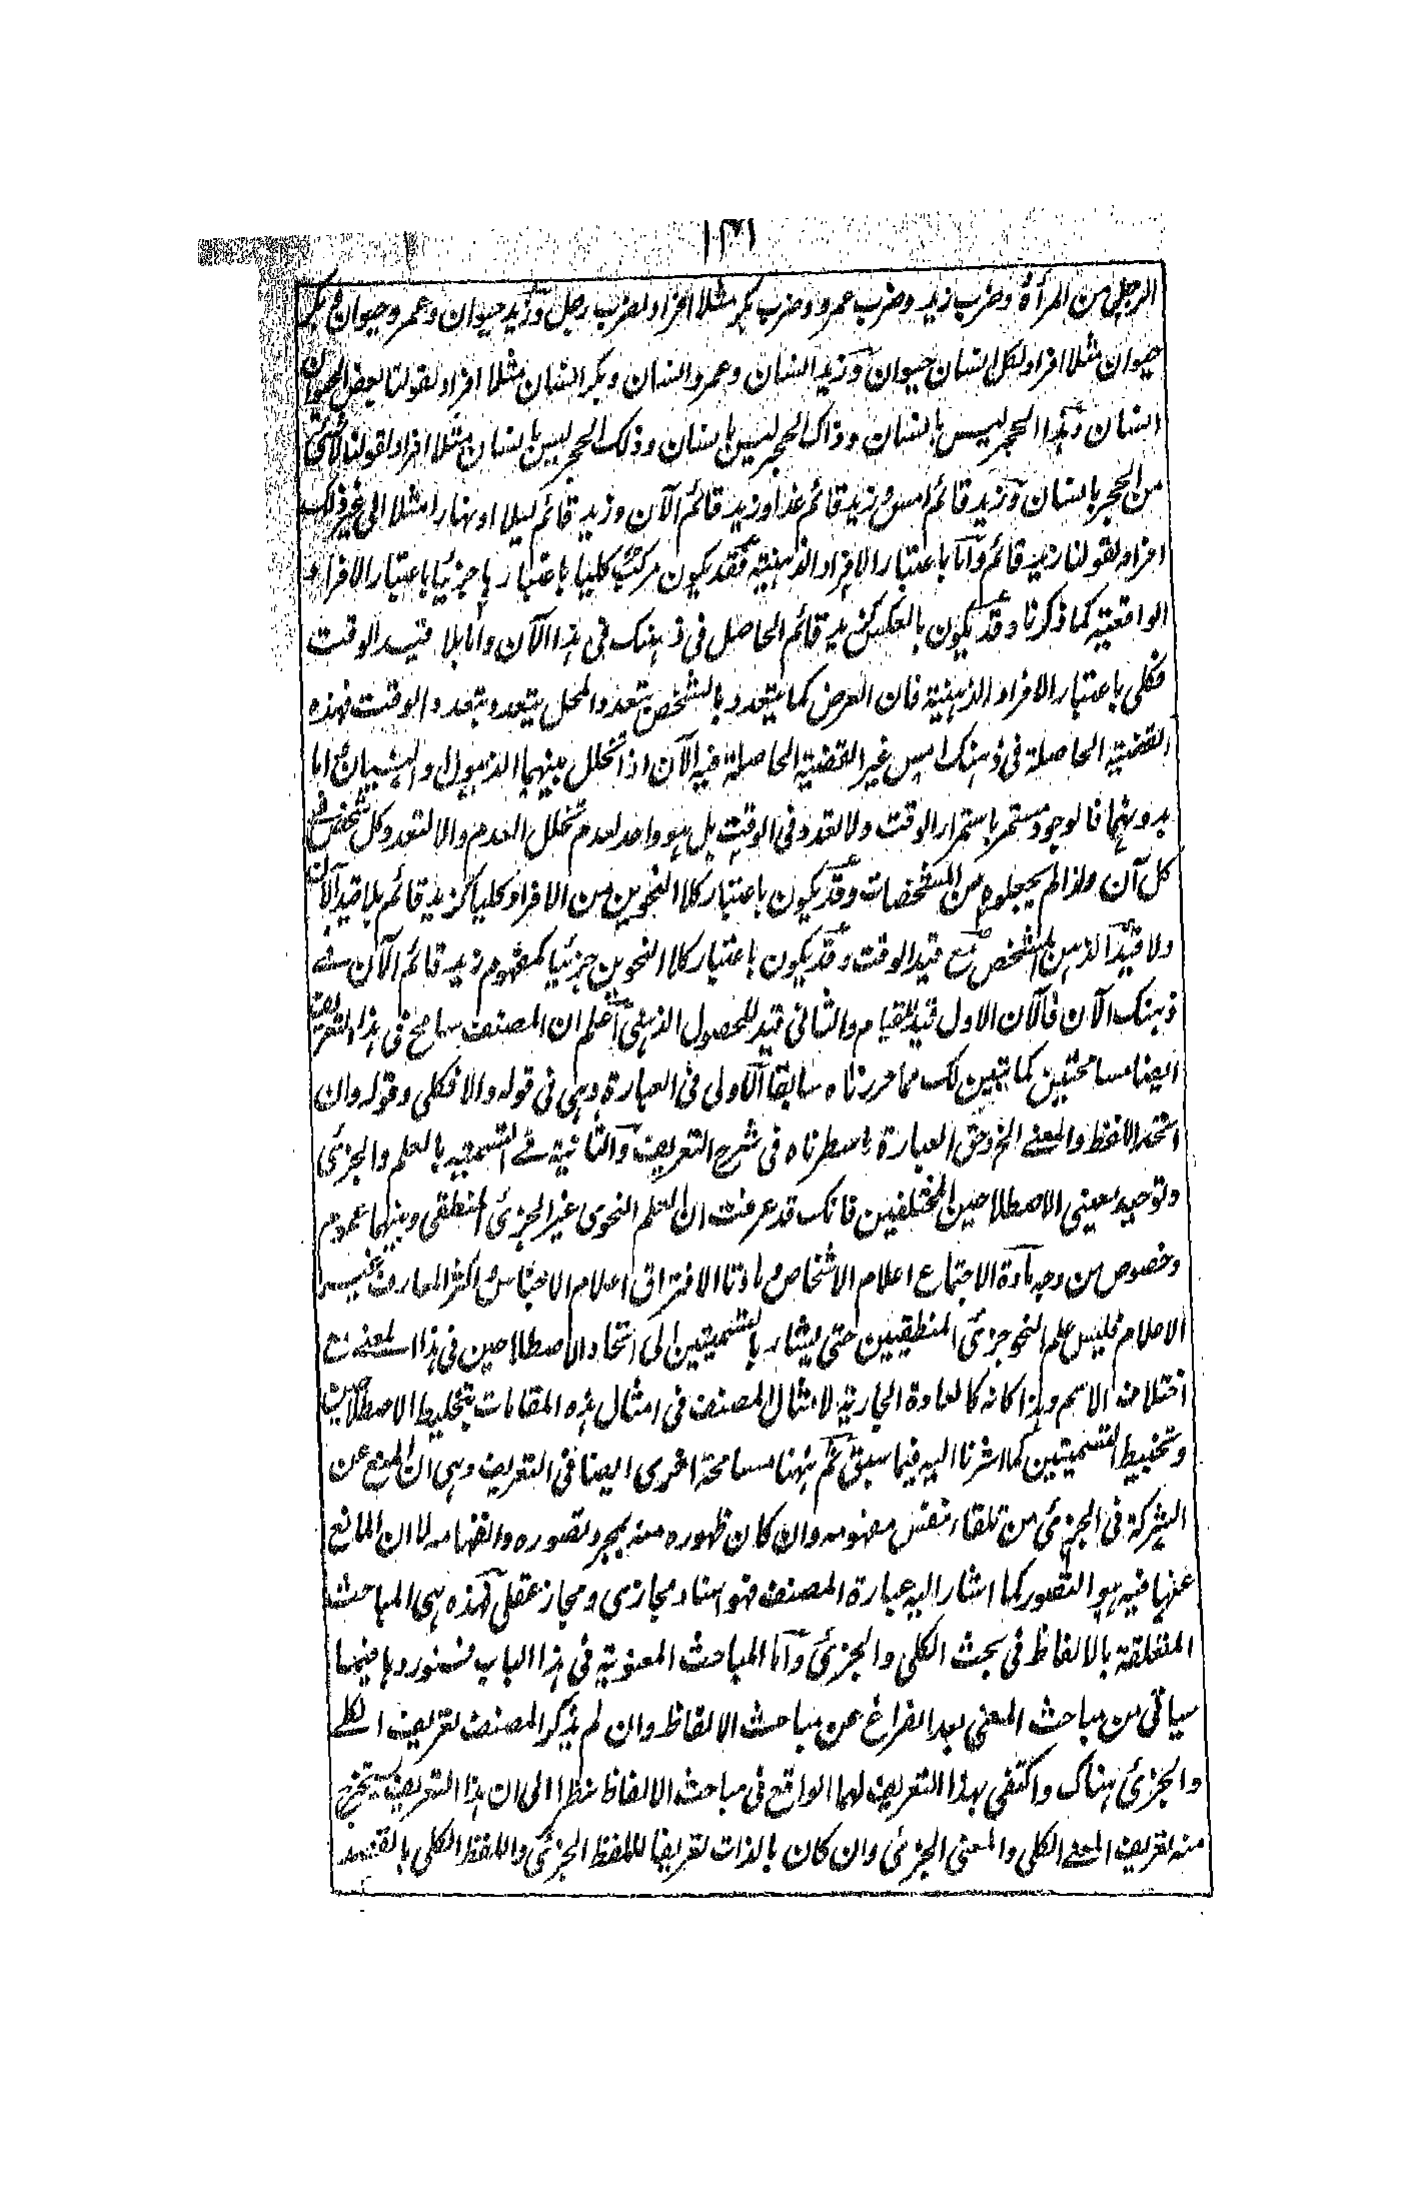 ١٣١
الرجل من المرأة وضرب زيد وضرب عمرو وضرب بكر مثلا افراد لضرب رجل وزيد حيوان وعمرو حيوان وبكر
حيوان مثلا افراد لكل انسان حيوان وزيد انسان وعمرو انسان وبكر انسان مثلا افراد لقولنا بعض الحيوان
انسان وهذا الحجر ليس بانسان وذاك الحجر ليس بانسان وذلك الحجر ليس بانسان مثلا افراد لقولنا لا شئ
من الحجر بانسان وزيد قائم امس وزيد قائم غدا وزيد قائم الآن وزيد قائم ليلا او نهارا مثلا الى غير ذلك
افراد لقولنا زيد قائم واما باعتبار الافراد الذهنية فقد يكون مركب كليا باعتبارها جزئيا باعتبار الافراد
الواقعية كما ذكرنا وقد يكون بالعكس كزيد قائم الحاصل في ذهنك في هذا الآن واما بلا قيد الوقت
فكلي باعتبار الافراد الذهنية فان العرض كما يتعدد بالشخص بتعدد المحل يتعدد بتعدد الوقت فهذه
القضية الحاصلة في ذهنك امس غير القضية الحاصلة فيه الآن اذا تخلل بينهما الذهول والنسيان اما
بدونهما فالوجود مستمر باستمرار الوقت ولا تعدد في الوقت بل هو واحد لعدم تخلل العدم والا لتعدد كل شخص في
كل آن ولذا لم يجعلوه من المشخصات وقد يكون باعتبار كلا النحوين من الافراد كليا كزيد قائم بلا قيد الآن
ولا قيد الذهن المشخص مع قيد الوقت وقد يكون باعتبار كلا النحوين جزئيا كمفهوم زيد قائم الآن في
ذهنك الآن فالآن الاول قيد للقيام والثاني قيد للحصول الذهني ثم اعلم ان المصنف سامح في هذا التعريف
ايضا مسامحتين كما يتبين لك مما حررناه سابقا الاولى في العبارة وهى في قوله والا فكلي وقوله وان
اتحد اللفظ والمعنى الخ وحق العبارة ما سطرناه في شرح التعريف والثانية في التسمية بالعلم والجزئي
وتوحيد معنى الاصطلاحين المختلفين فانك قد عرفت ان العلم النحوي غير الجزئي المنطقي وبينهما عموم
وخصوص من وجه مادة الاجتماع اعلام الاشخاص ومادتا الافتراق اعلام الاجناس واكثر المعارف غير
الاعلام فليس علم النحو جزئي المنطقيين حتى يشار بالتسميتين الى اتحاد الاصطلاحين في هذا المعنى مع
اختلاف الاسم وهذا كانه كالعادة الجارية لامثال المصنف في امثال هذه المقامات بتخليط الاصطلاحين
وتخبيط التسميتين كما اشرنا اليه فيما سبق ثم ههنا مسامحة اخرى ايضا في التعريف وهى ان المنع عن
الشركة في الجزئي من تلقاء نفس مفهومه وان كان ظهوره منه بمجرد تصوره وانفهامه لا ان المانع
عنها فيه هو التصور كما اشار اليه عبارة المصنف فهو اسناد مجازي ومجاز عقلي فهذه هى المباحث
المتعلقة بالالفاظ في بحث الكلي والجزئي واما المباحث المعنوية في هذا الباب فسنوردها فيما
سياتي من مباحث المعنى بعد الفراغ عن مباحث الالفاظ وان لم يذكر المصنف تعريف الكلي
والجزئي هناك واكتفى بهذا التعريف لهما الواقع في مباحث الالفاظ نظرا الى ان هذا التعريف يستخرج
منه تعريف المعنى الكلي والمعنى الجزئي وان كان بالذات تعريفا للفظ الجزئي واللفظ الكلي بالقصد